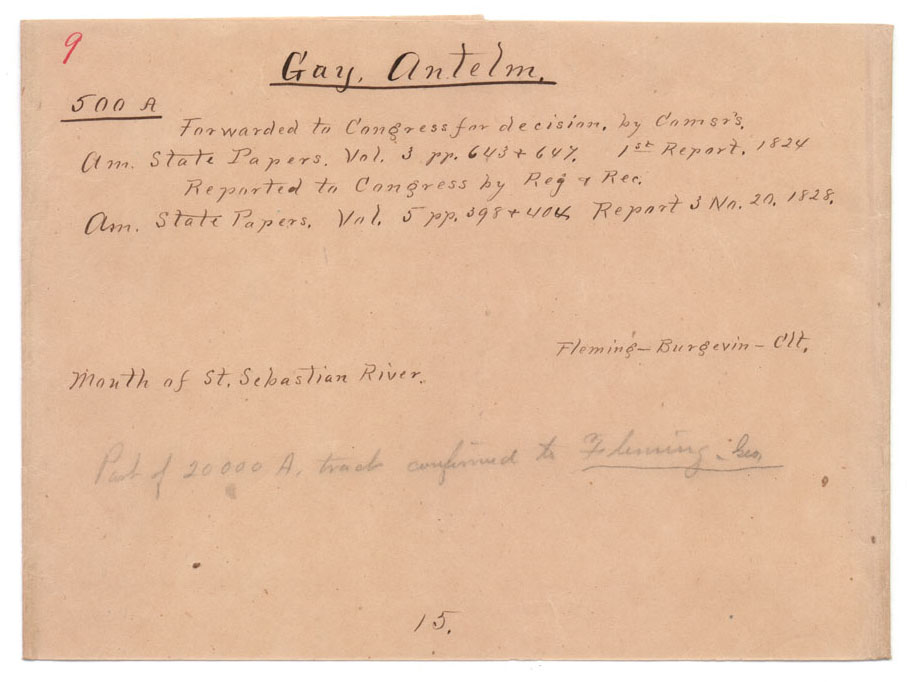 9
Gay, Antelm.
500 A
Forwarded to Congress for decision, by Comsr's.
Am. State Papers. Vol. 3 pp. 643 + 647. 1st Report, 1824
Reported to Congress by Reg & Rec.
Am. State Papers. Vol. 5 pp. 398 + 404 Report 3 No. 20. 1828.
Fleming - Burgevin - Clt.
Mouth of St. Sebastian River.
Part of 20000 A. tract confirmed to Fleming, Geo
15.